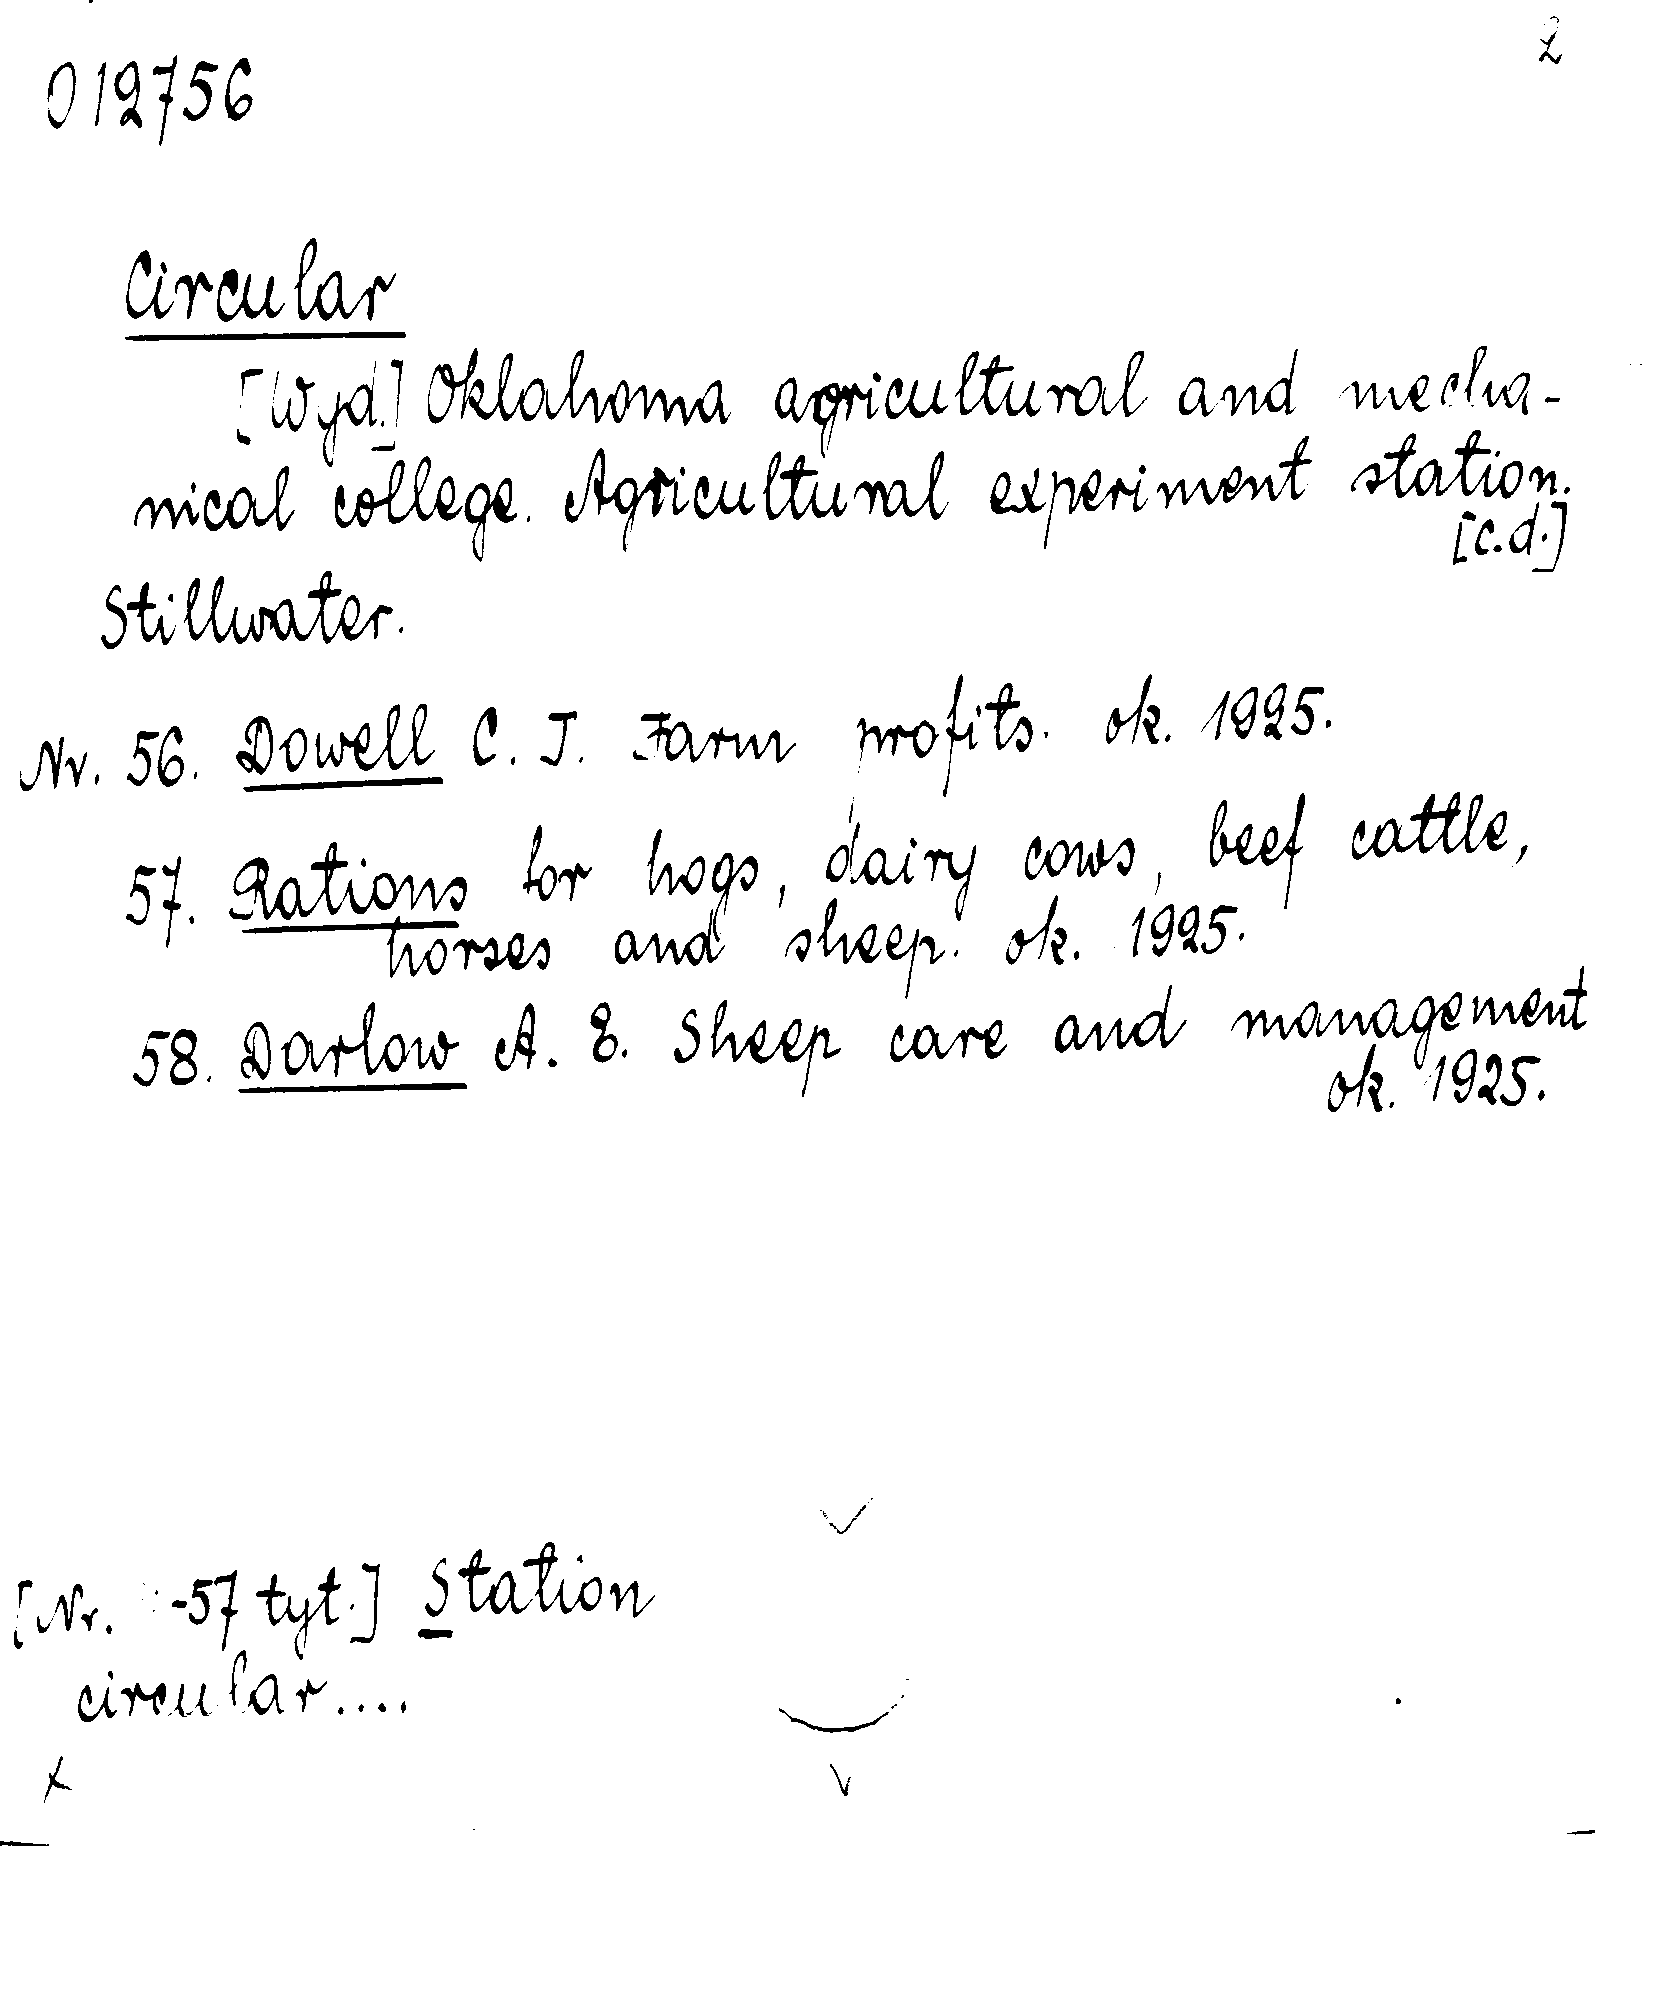 2
012756
Circular
[Wyd.] Oklahoma agricultural and mecha-
nical college. Agricultural experiment station.
[c.d.]
Stillwater.
Nr. 56. Dowell C. T. Farm profits. ok. 1925.
57. Rations for hogs, dairy cows, beef cattle,
horses and sheep. ok. 1925.
58. Darlow A. E. Sheep care and management
ok. 1925.
[Nr. -57 tyt.] Station
circular....
x